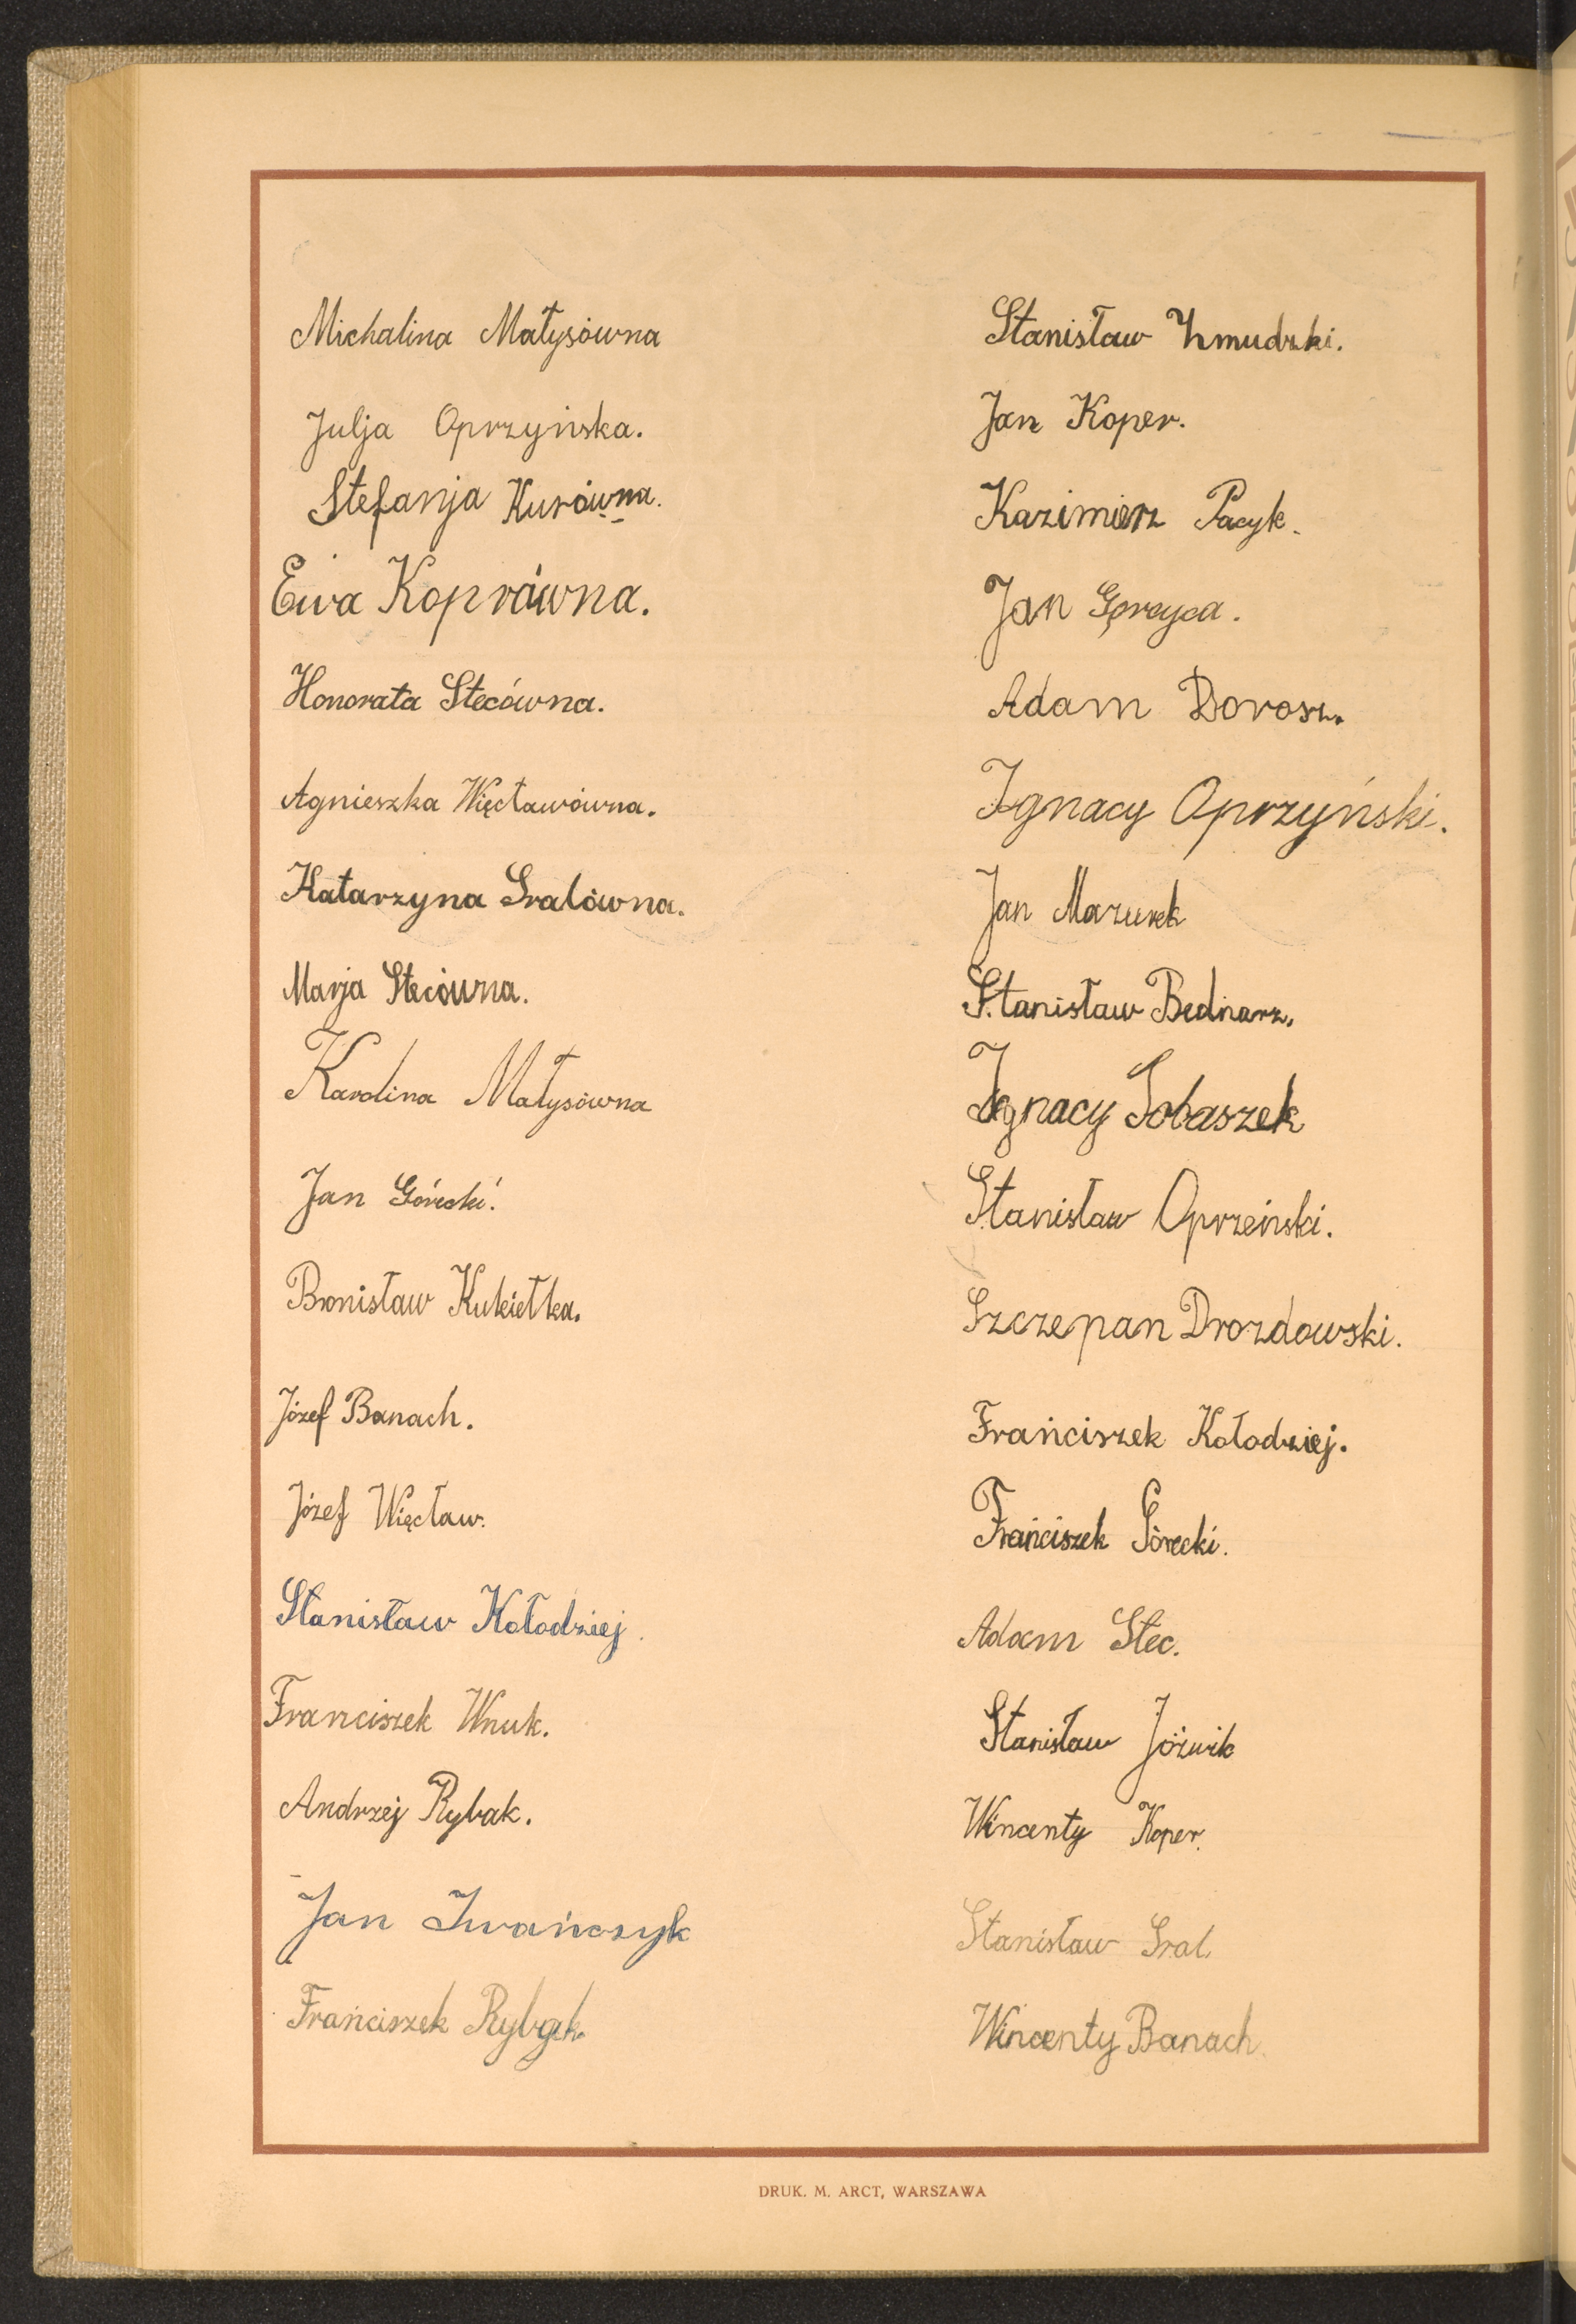 Michalina Małysówna
Julja Oprzyńska.
Stefanja Kurówna.
Ewa Koprówna.
Honorata Stecówna.
Agnieszka Więcławówna.
Katarzyna Sralówna.
Marja Stecówna.
Karolina Małysówna
Jan Górecki.
Bronisław Kukiełka.
Józef Banach.
Józef Więcław.
Stanisław Kołodziej.
Franciszek Wnuk.
Andrzej Rybak.
Jan Iwańczyk
Frańciszek Rybak.
Stanisław Żmudzki.
Jan Koper.
Kazimierz Pacyk.
Jan
Adam Dorosz.
Ignacy Oprzyński.
Jan Mazurek
Stanisław Bednarz.
Ignacy Sobaszek
Stanisław Oprzeński.
Szczepan Drozdowski.
Frańciszek Kołodziej.
Frańciszek Górecki.
Adam Stec.
Stanisław Jóźwik
Wincenty Koper.
Stanisław Sral
Wincenty Banach.
DRUK. M. ARCT, WARSZAWA